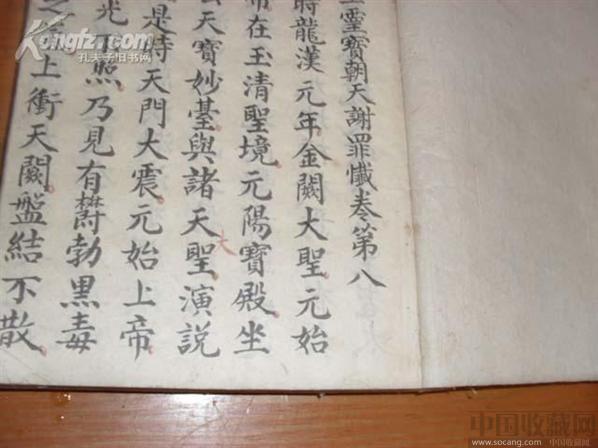 靈寶朝天謝罪懺卷第八
時龍漢元年金闕大聖元始
帝在玉清聖境元陽寶殿坐
天寶妙臺與諸天聖演說
是時天門大震元始上帝
光不照乃見有欝勃黑毒
之氣上衝天闕盤結不散
大
Kongfz.com
孔夫子旧书网
中国收藏网
www.socang.com 中国收藏网